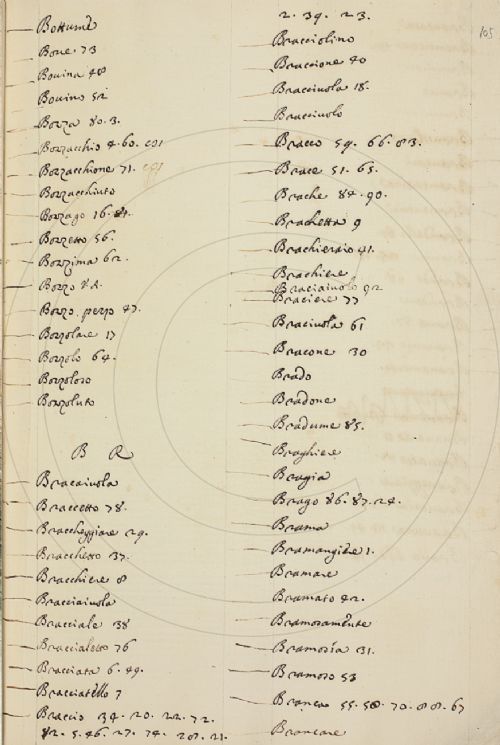 Bottume
Bove 73
Bovina 48
Bovino 52
Bozza 80. 3.
Bozzacchio 4. 60.
Bozzacchione 71.
Bozzacchiuto
Bozzago 16. 81.
Bozzetto 56.
Bozzima 62.
Bozzo
Bozzo. pezzo 47.
Bozzolare 17
Bozzolo 64.
Bozzoloso
Bozzoluto
B R
Bracaiuola
Braccetto 78.
Braccheggiare 29.
Bracchetto 37.
Bracchiere 8
Bracciaiuola
Bracciale 38
Braccialetto 76
Bracciata 6. 49.
Bracciatello 7
Braccio 34. 20. 22. 72.
82. 5. 46. 27. 74. 28. 21.
2. 39. 23.
Bracciolino
Braccione 40
Bracciuola 18.
Bracciuolo
Bracco 59. 66. 83.
Brace 51. 65.
Brache 84. 90.
Brachetta 9
Brachieraio 41.
Brachiere
Braciaiuolo 92
Braciere 77
Braciuola 61
Bracone 30
Brado
Bradone
Bradume 85.
Braghiere
Bragia
Brago 86. 87. 24.
Brama
Bramangiere 1.
Bramare
Bramato 42.
Bramosamente
Bramosia 31.
Bramoso 53
Branca 55. 58. 70. 88. 67
Brancare
105